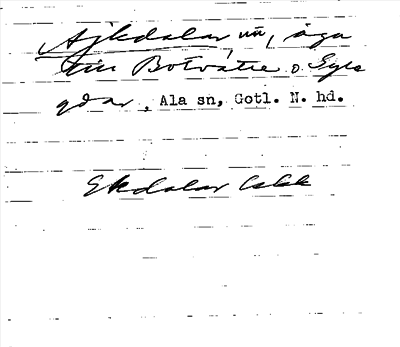 Ajkdalar, nn, äga
till Botvatte o. Syse
gdar, Ala sn, Gotl. N. hd.
Ekdalar